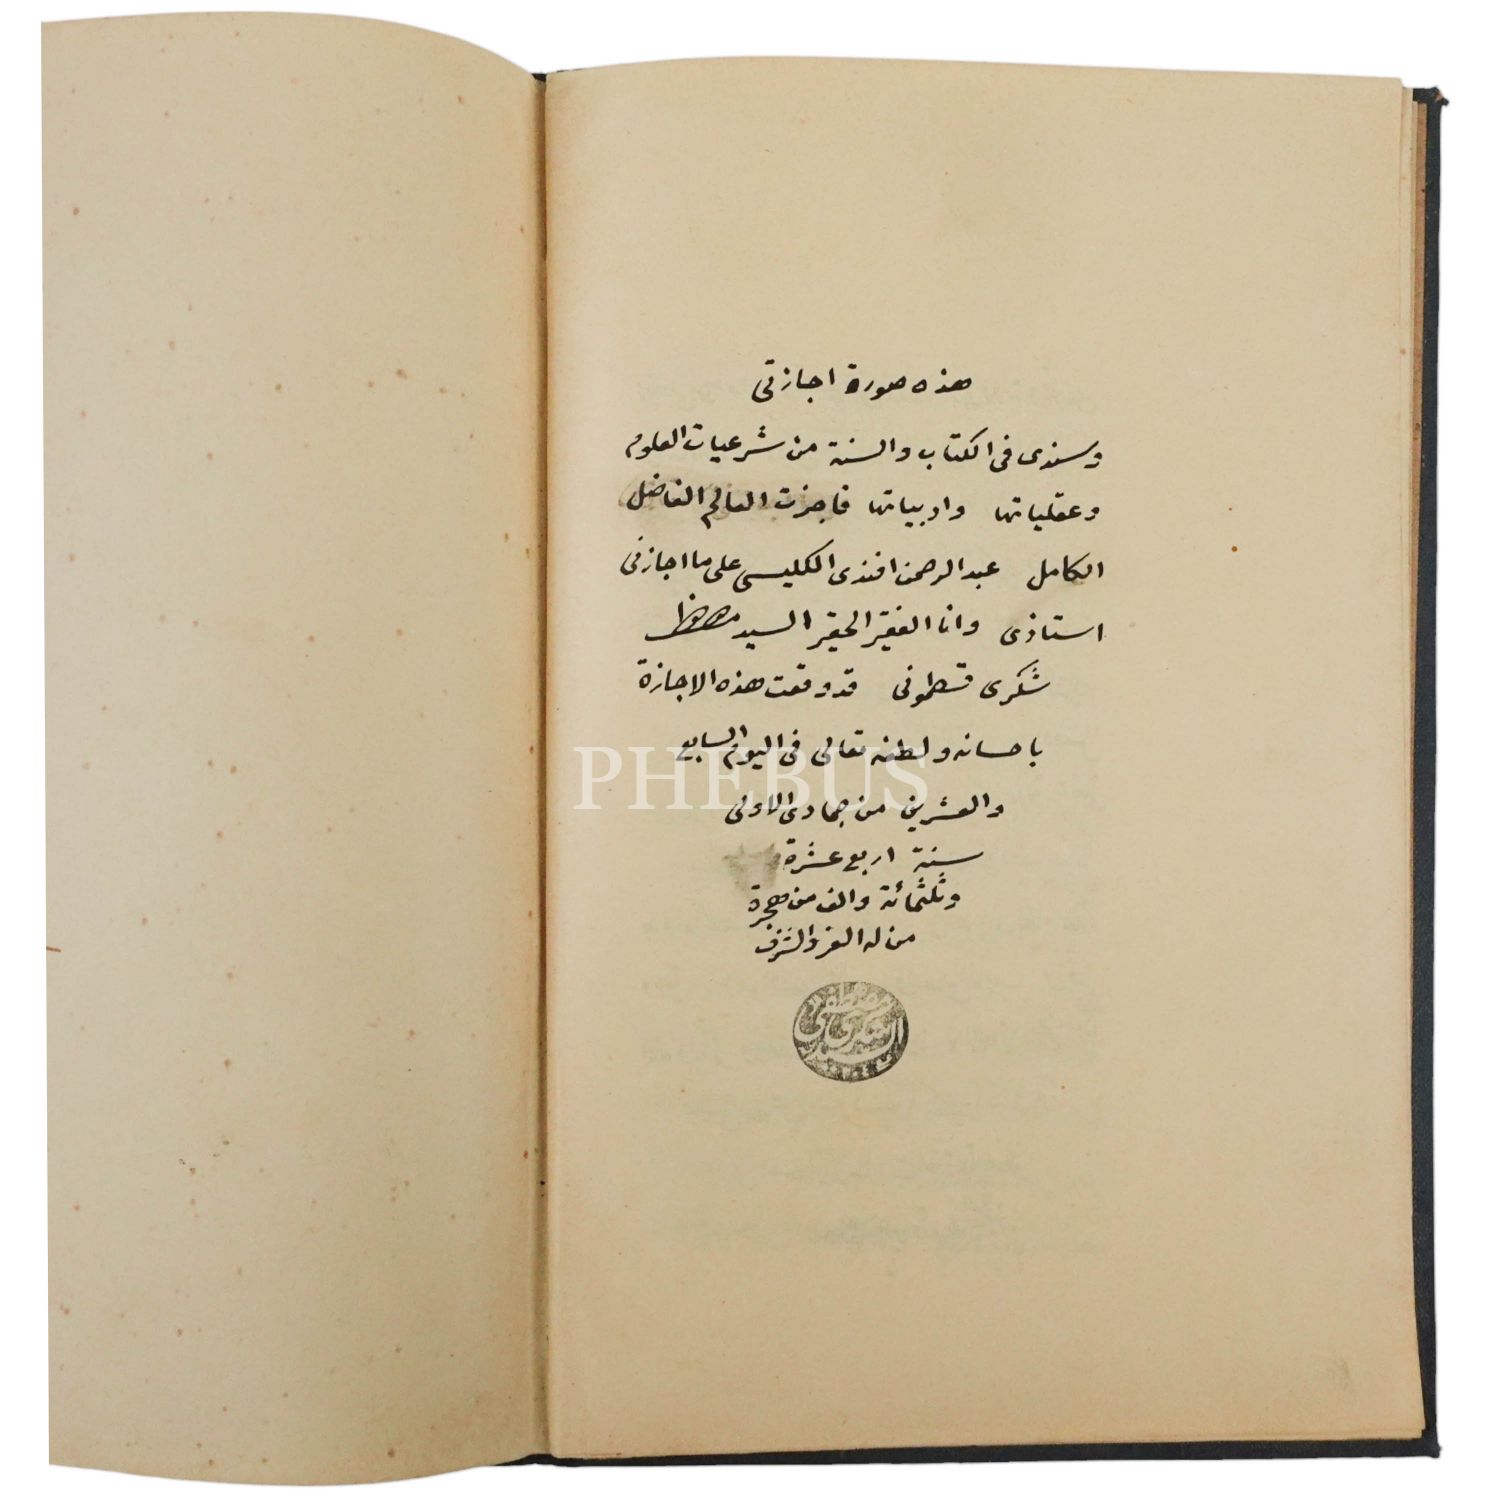 هذه صورة اجازتى
وسندى فى الكتاب والسنة من شرعيات العلوم
وعقلياتها وادبياتها فاجزت العالم الفاضل
الكامل عبد الرحمن افندى الكليسى على ما اجازنى
استاذى وانا الفقير الحقير السيد
شكرى قسطمونى قد وقعت هذه الاجازة
باحسانه ولطفه تعالى فى اليوم السابع
والعشرين من جمادى الاولى
سنة اربع عشرة
وثلثمائة والف من هجرة
من له العز والشرف
PHEBUS